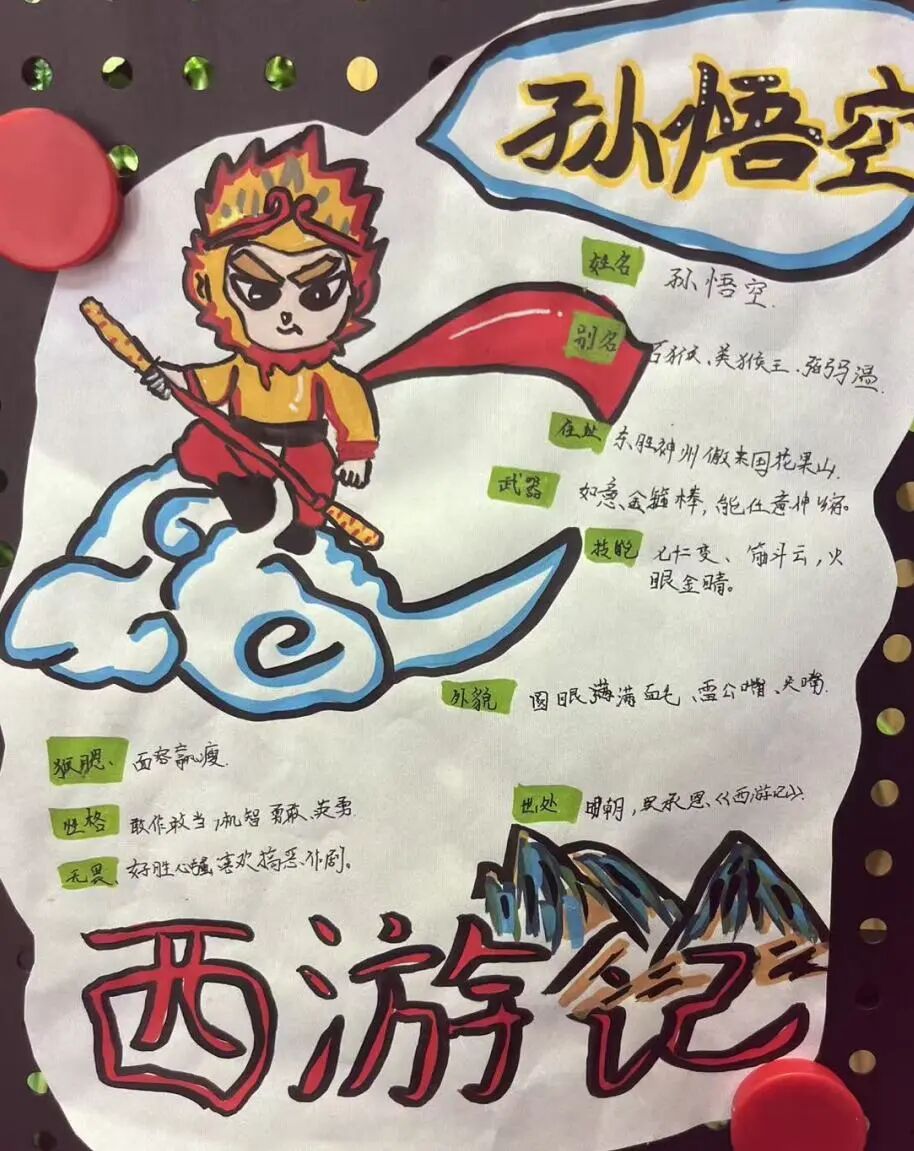 孙悟空
姓名 孙悟空.
别名 石猴、美猴王、弼马温.
住址 东胜神州傲来国花果山.
武器 如意金箍棒，能任意伸缩。
技能 七十二变、筋斗云，火
眼金睛。
外貌 圆眼 满 毛、雷公嘴、尖嘴.
猴腮、面容羸瘦.
出处 明朝，吴承恩《西游记》
性格 敢作敢当、机智勇敢、英勇
无畏、好胜心强，喜欢搞恶作剧。
西游记